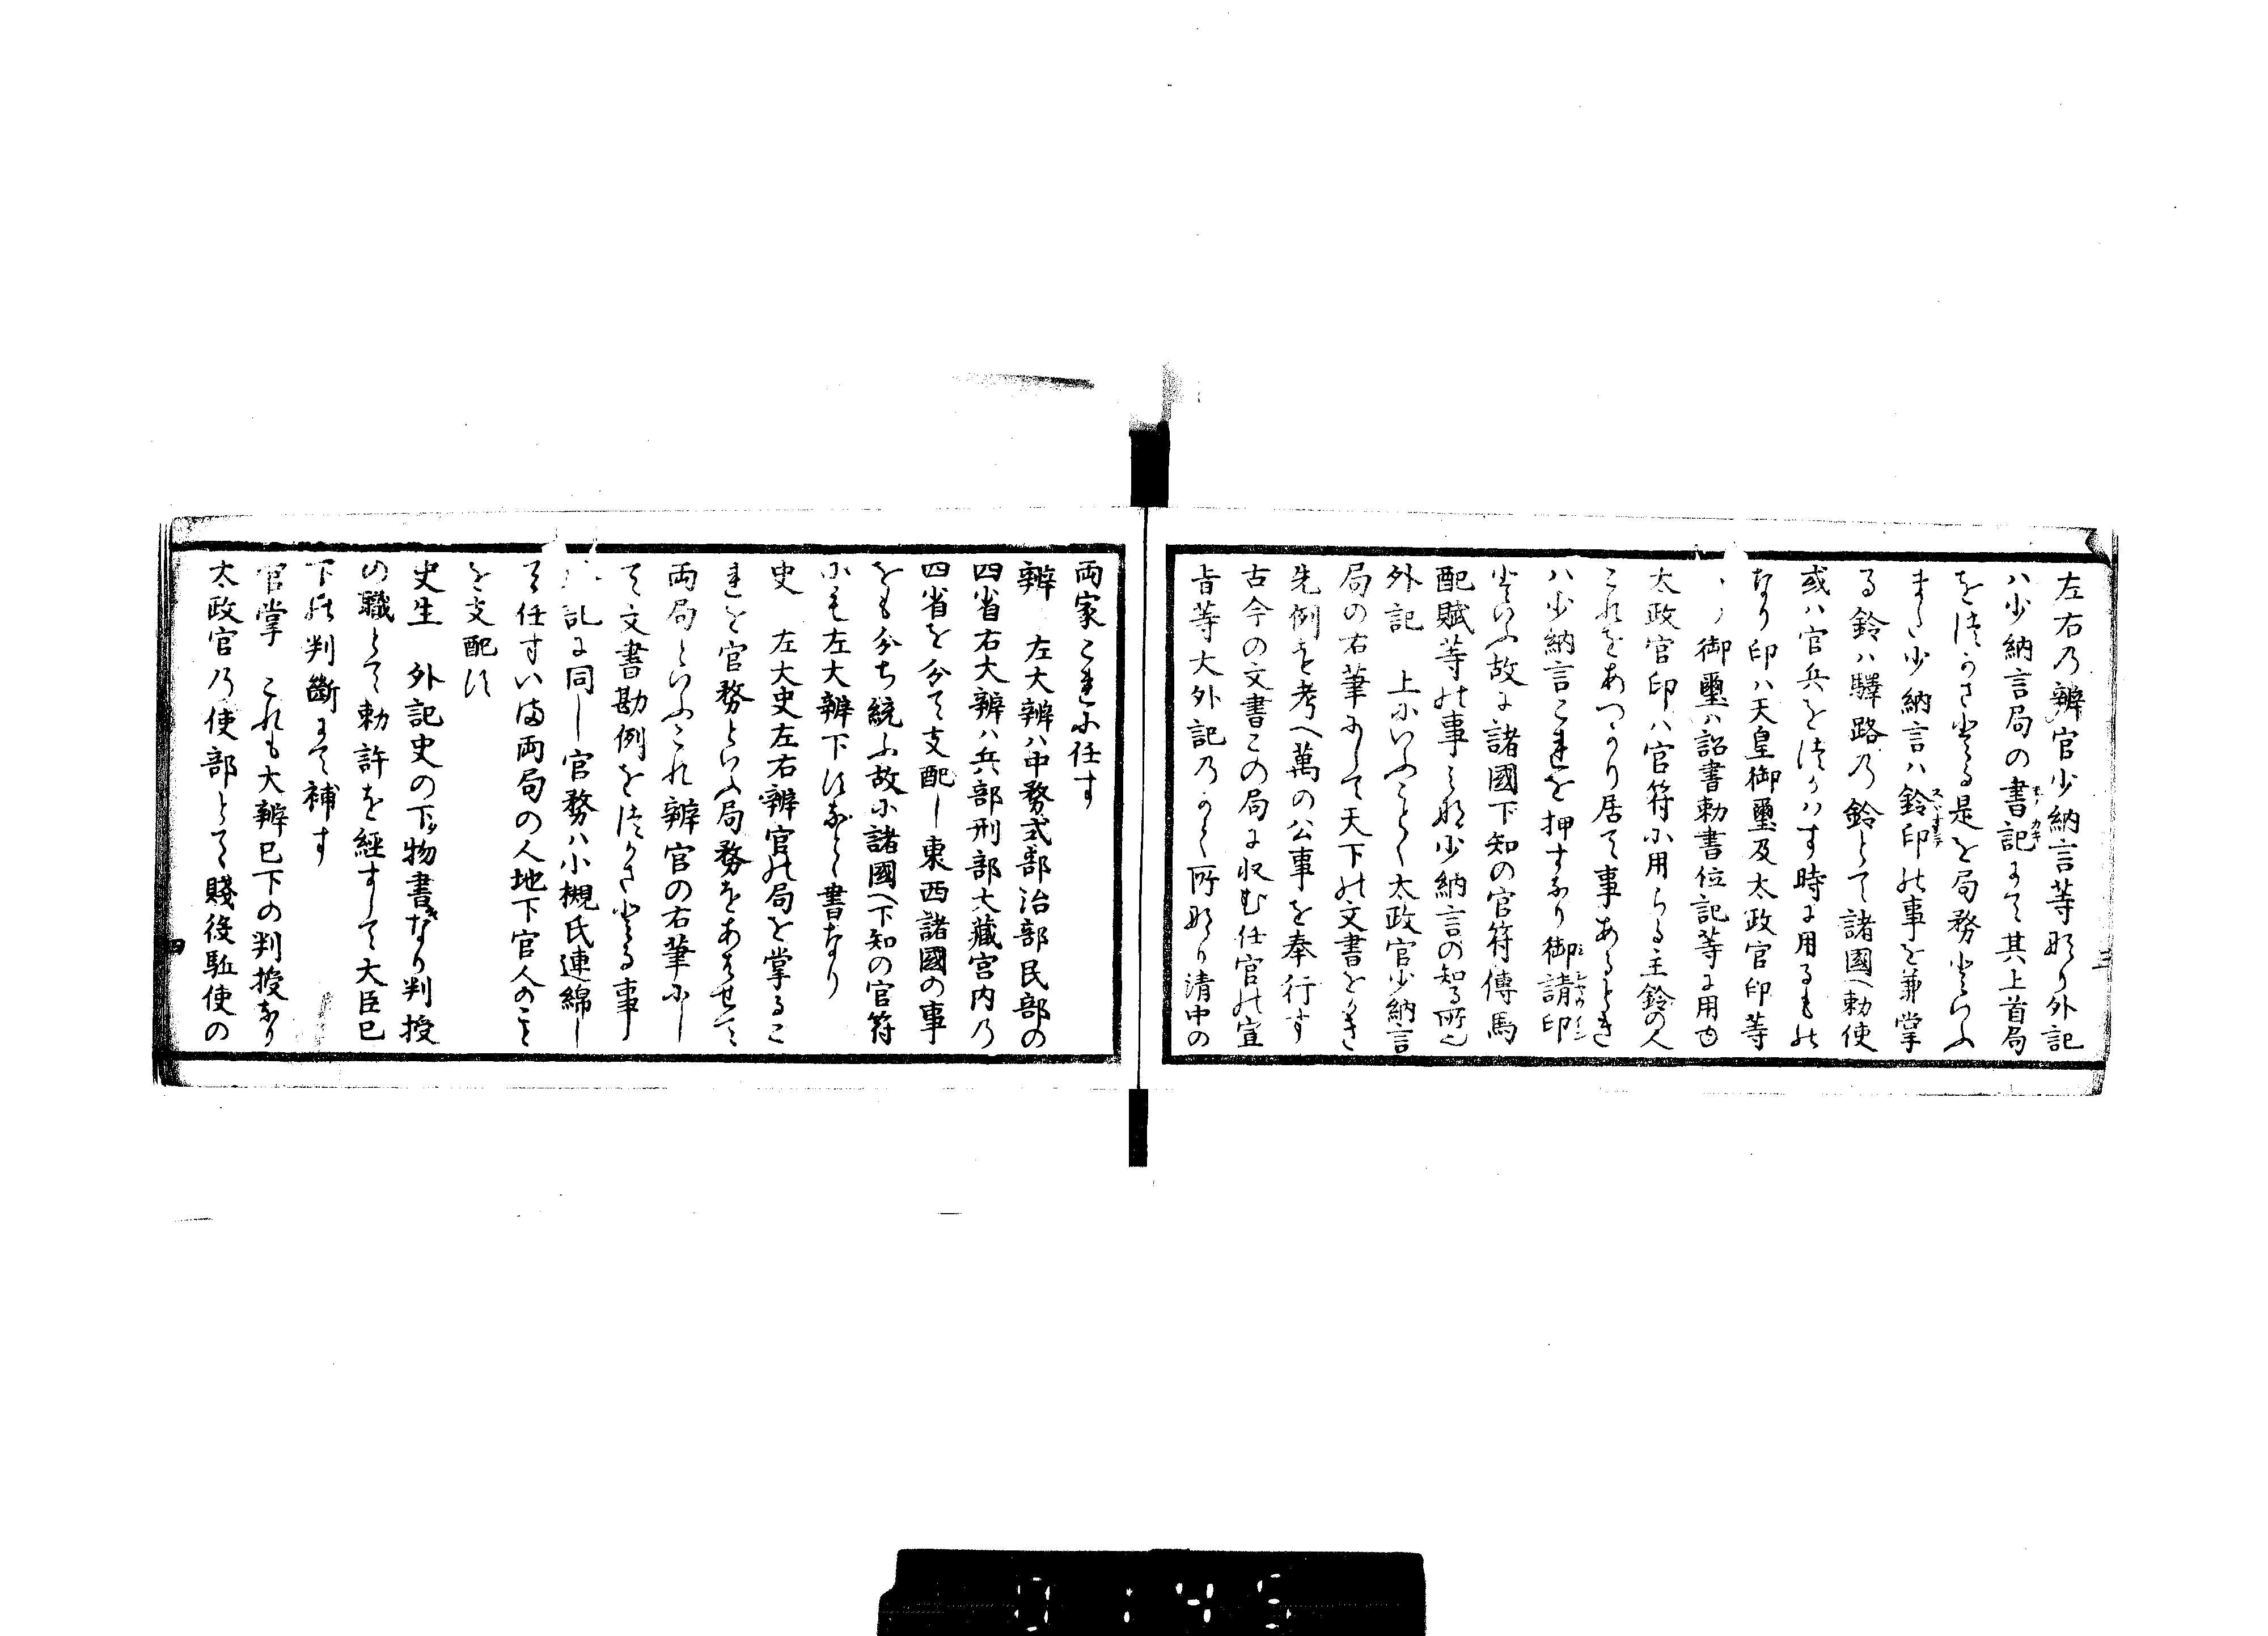 左右乃辨官少納言等なり外記
ハ少納言局の書記にて其上首局
をつかさとる是を局務といふ
また少納言ハ鈴印の事を兼掌
る鈴ハ驛路乃鈴とて諸國へ勅使
或ハ官兵をつかハす時に用るもの
なり印ハ天皇御璽及太政官印等
御璽ハ詔書勅書位記等に用由
太政官印ハ官符に用らる主鈴の人
これをあつかり居て事あるとき
ハ少納言これを押すなり御請印
といふ故に諸國下知の官符傳馬
配賦等の事みな少納言の知る所也
外記　上にいふことく太政官少納言
局の右筆にして天下の文書をかき
先例を考へ萬の公事を奉行す
古今の文書この局に収む任官の宣
旨等大外記乃かく所なり清中の
三
両家これに任す
辨　左大辨ハ中務式部治部民部の
四省右大辨ハ兵部刑部大藏宮内乃
四省を分て支配し東西諸國の事
をも分ち統ふ故に諸國へ下知の官符
にも左大辨下すなと書なり
史　左大史左右辨官の局を掌るこ
れを官務といふ局務をあはせて
両局といふこれ辨官の右筆にし
て文書勘例をつかさとる事
記に同し官務ハ小槻氏連綿し
て任すいま両局の人地下官人のこと
を支配す
史生　外記史の下物書なり判授
の職とて勅許を經すして大臣已
下の判斷にて補す
官掌　これも大辨已下の判授なり
太政官乃使部とて賤役駈使の
四